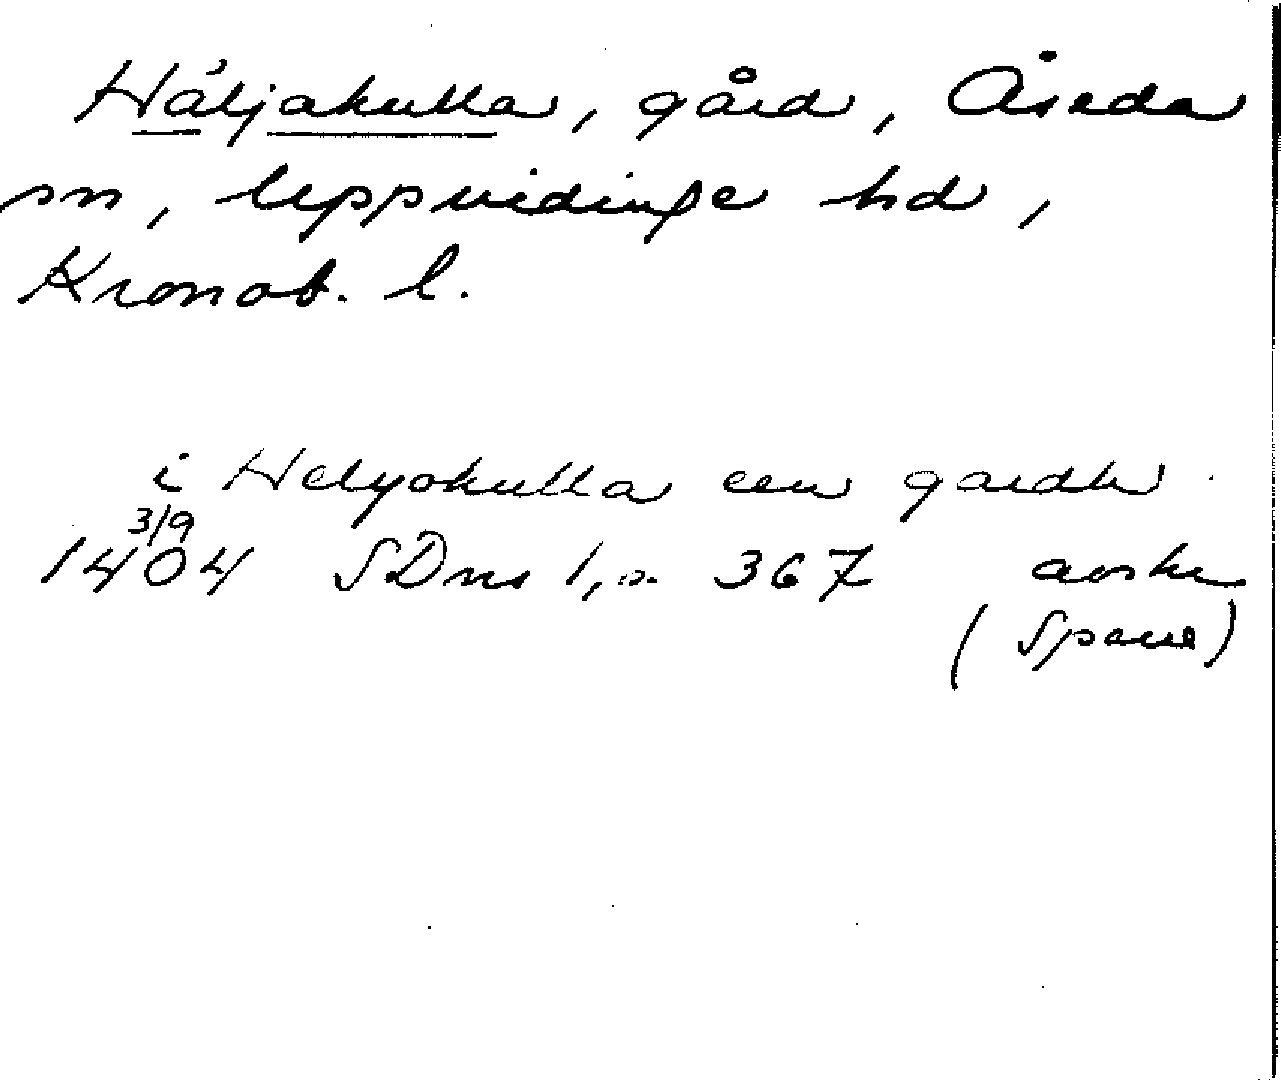 Häljakulla, gård, Åseda
sn, Uppvidinge hd,
Kronob. l.
i Helyokulla een gardh
3/9
1404 SDns 1, s. 367 avskr
(Spare)